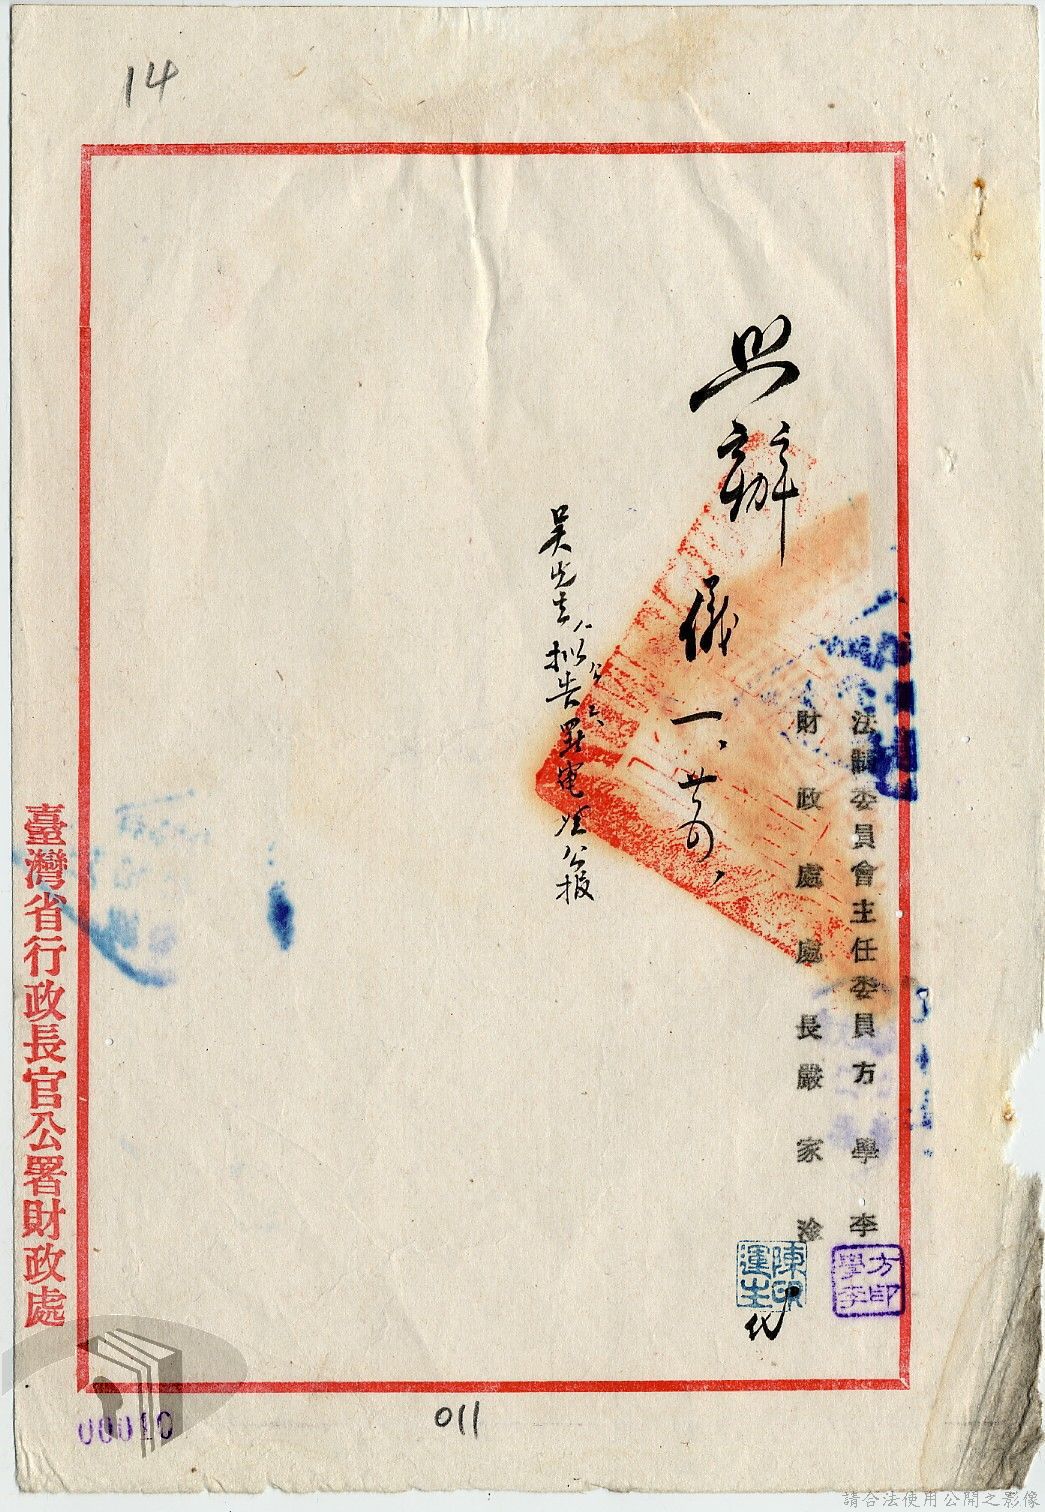 14
法制委員會主任委員方學李
方學李印
財政處處長嚴家淦
陳運生印
代
照辦
儀 一、廿四、
吳先生擬告
公報
臺灣省行政長官公署財政處
00010
011
請合法使用公開之影像